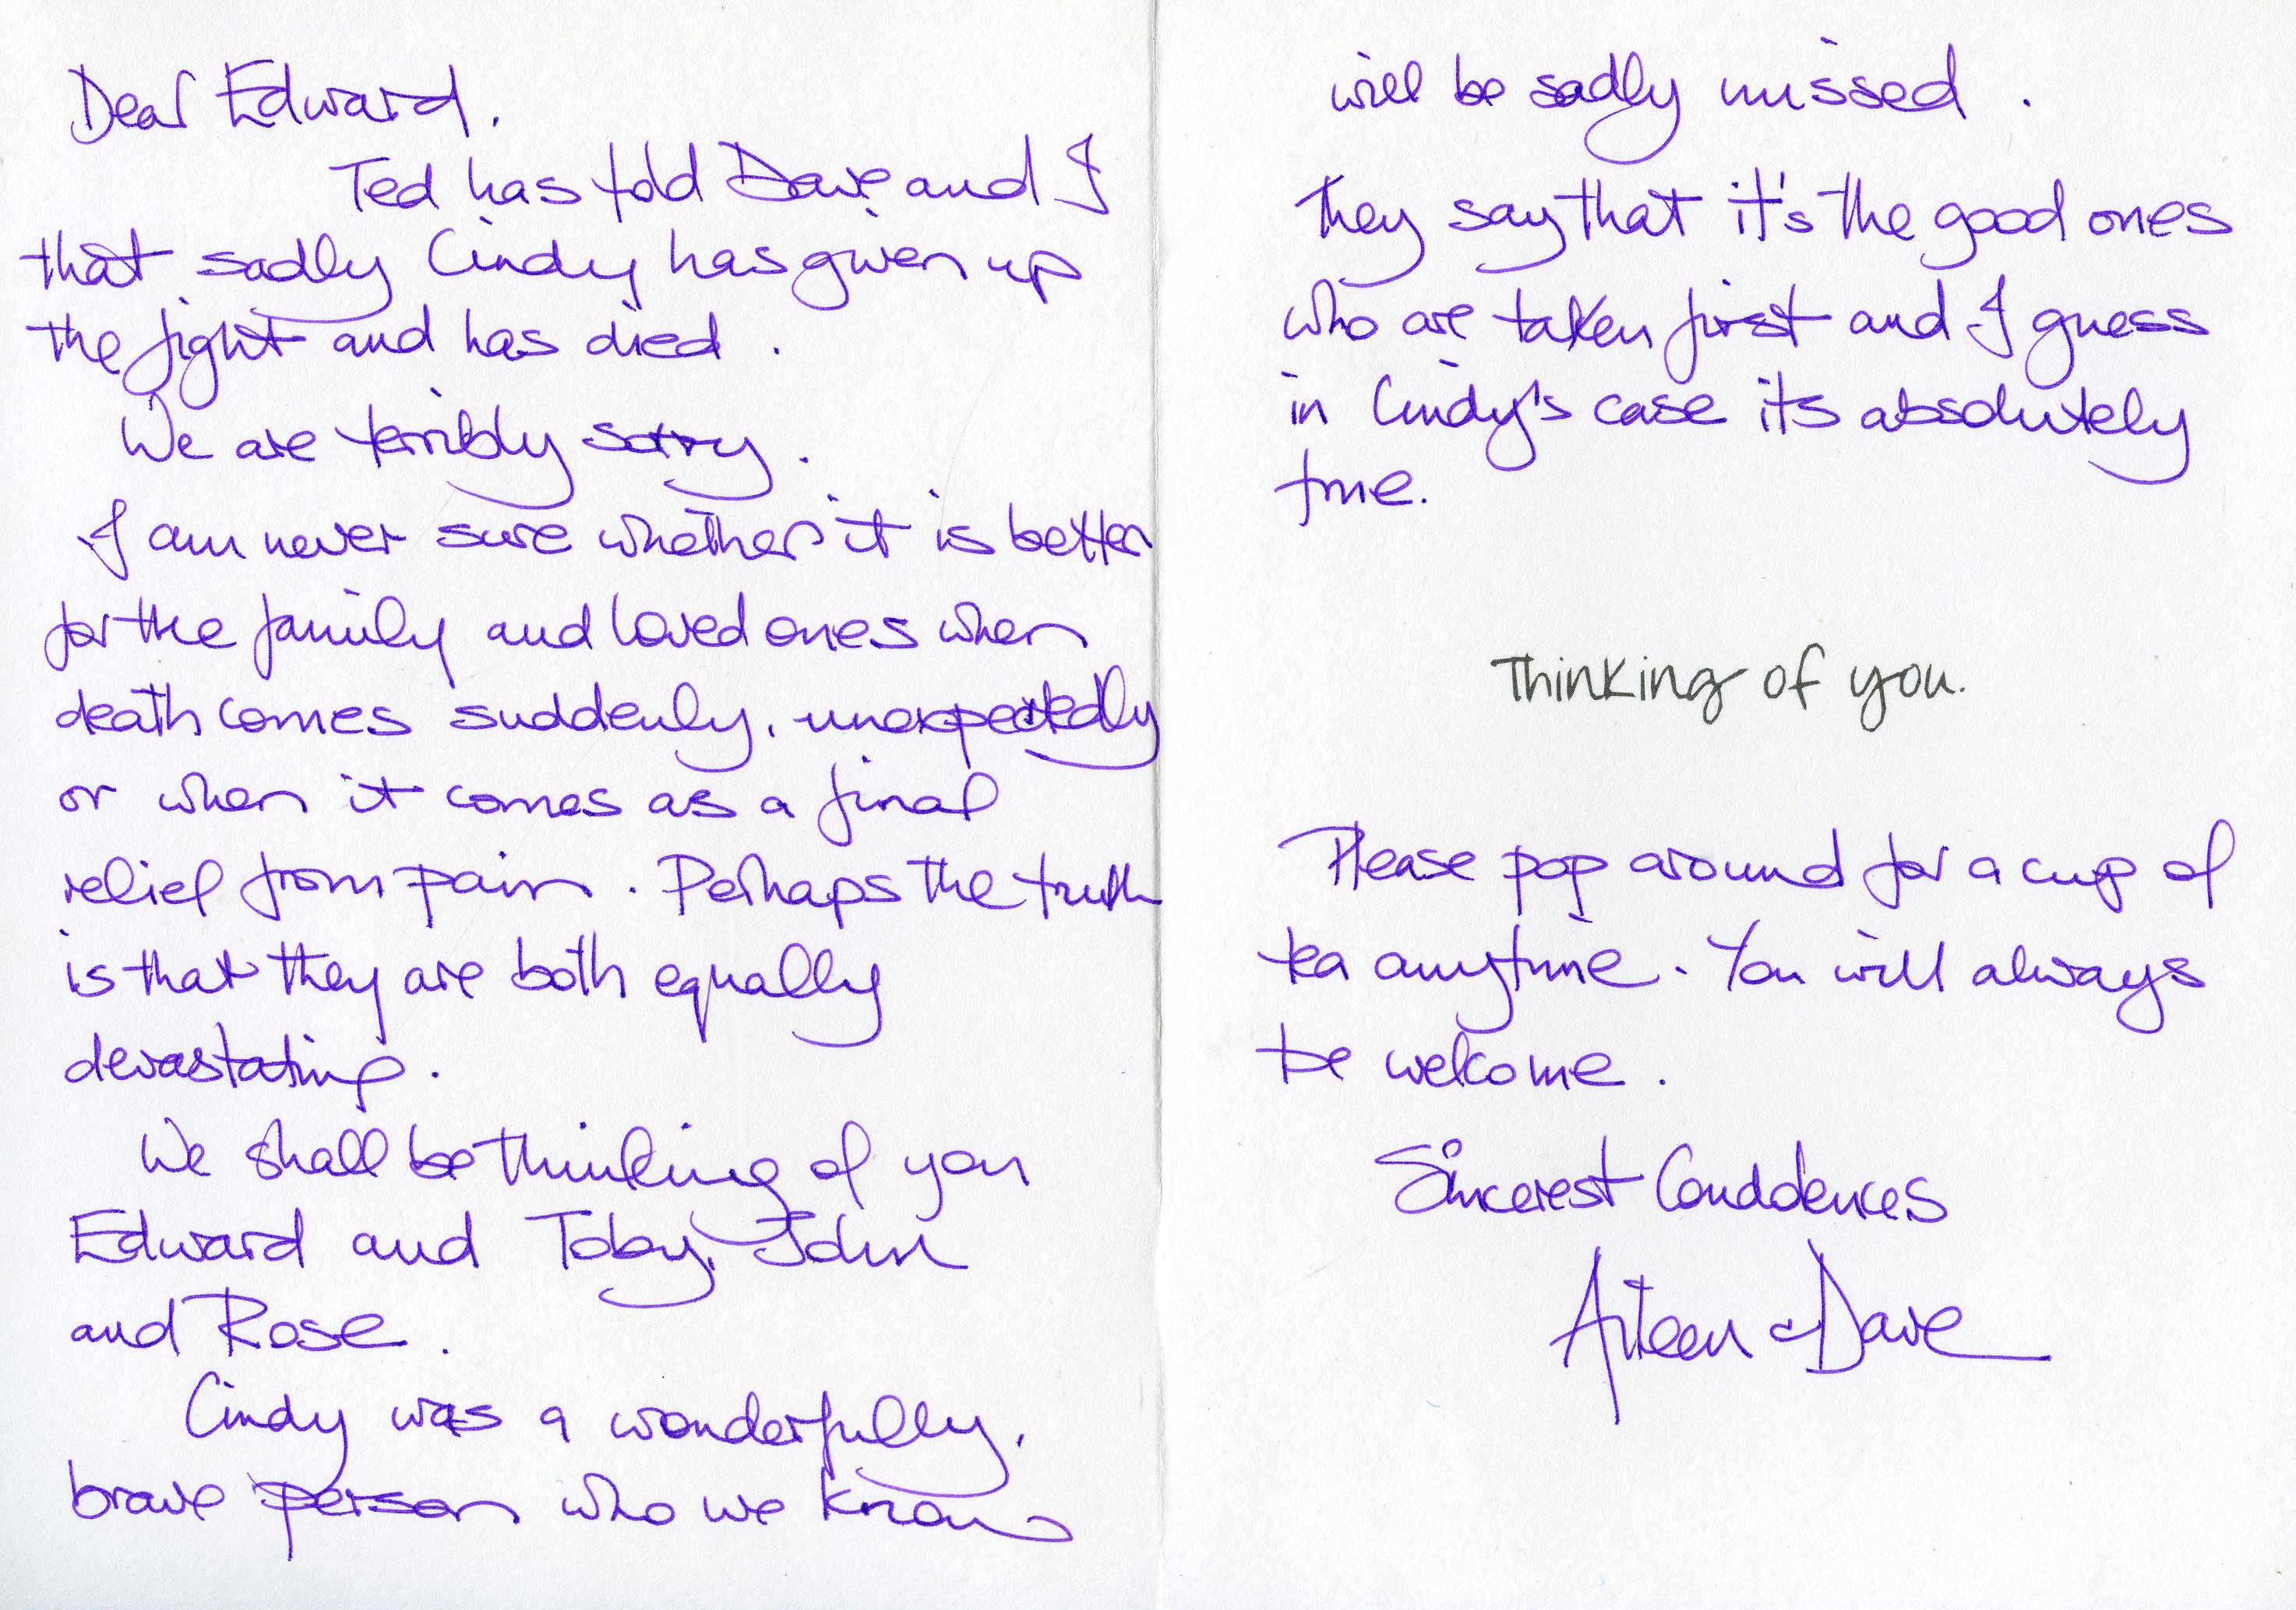 Dear Edward.
Ted has told Dave and I
that sadly Cindy has given up
the fight and has died .
We are terribly sorry .
I am never sure whether it is better
for the family and loved ones when
death comes suddenly, unexpectedly
or when it comes as a final
relief from pain . Perhaps the truth
is that they are both equally
devastating .
We shall be thinking of you
Edward and Toby, John
and Rose .
Cindy was a wonderfully,
brave person who we know
will be sadly missed .
They say that it's the good ones
who are taken first and I guess
in Cindy's case its absolutely
true.
Thinking of you.
Please pop around for a cup of
tea anytime. You will always
be welcome .
Sincerest Condolences
Aileen & Dave